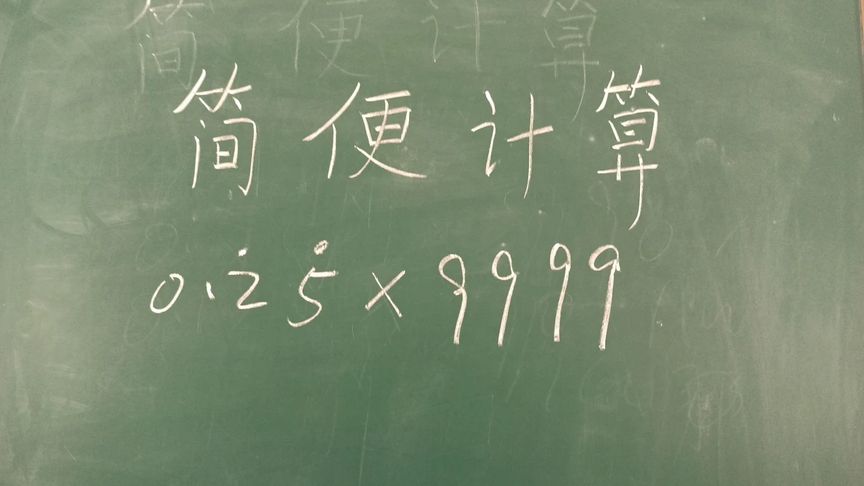 简便计算
0.2̇5̇×9999